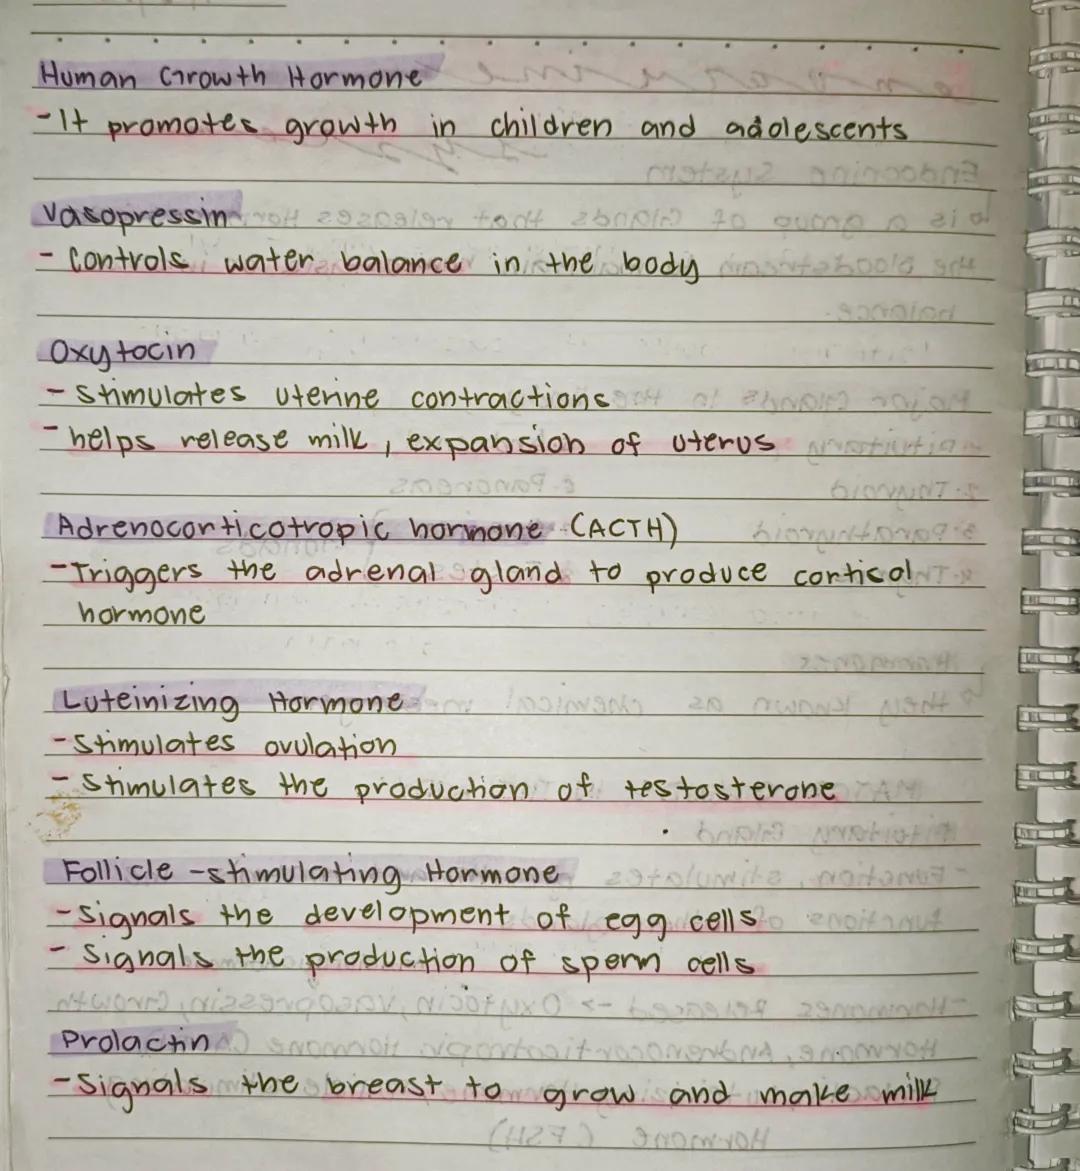 Human Growth Hormone
- It promotes growth in children and adolescents
Vasopressin
- Controls water balance in the body
Oxytocin
- Stimulates uterine contractions
- helps release milk, expansion of uterus
Adrenoconticotropic hormone (ACTH)
- Triggers the adrenal gland to produce cortisol
hormone
Luteinizing Hormone
- Stimulates ovulation
- Stimulates the production of testosterone
Follicle - stimulating Hormone
- Signals the development of egg cells
- Signals the production of sperm cells
Prolactin
- Signals the breast to grow and make milk